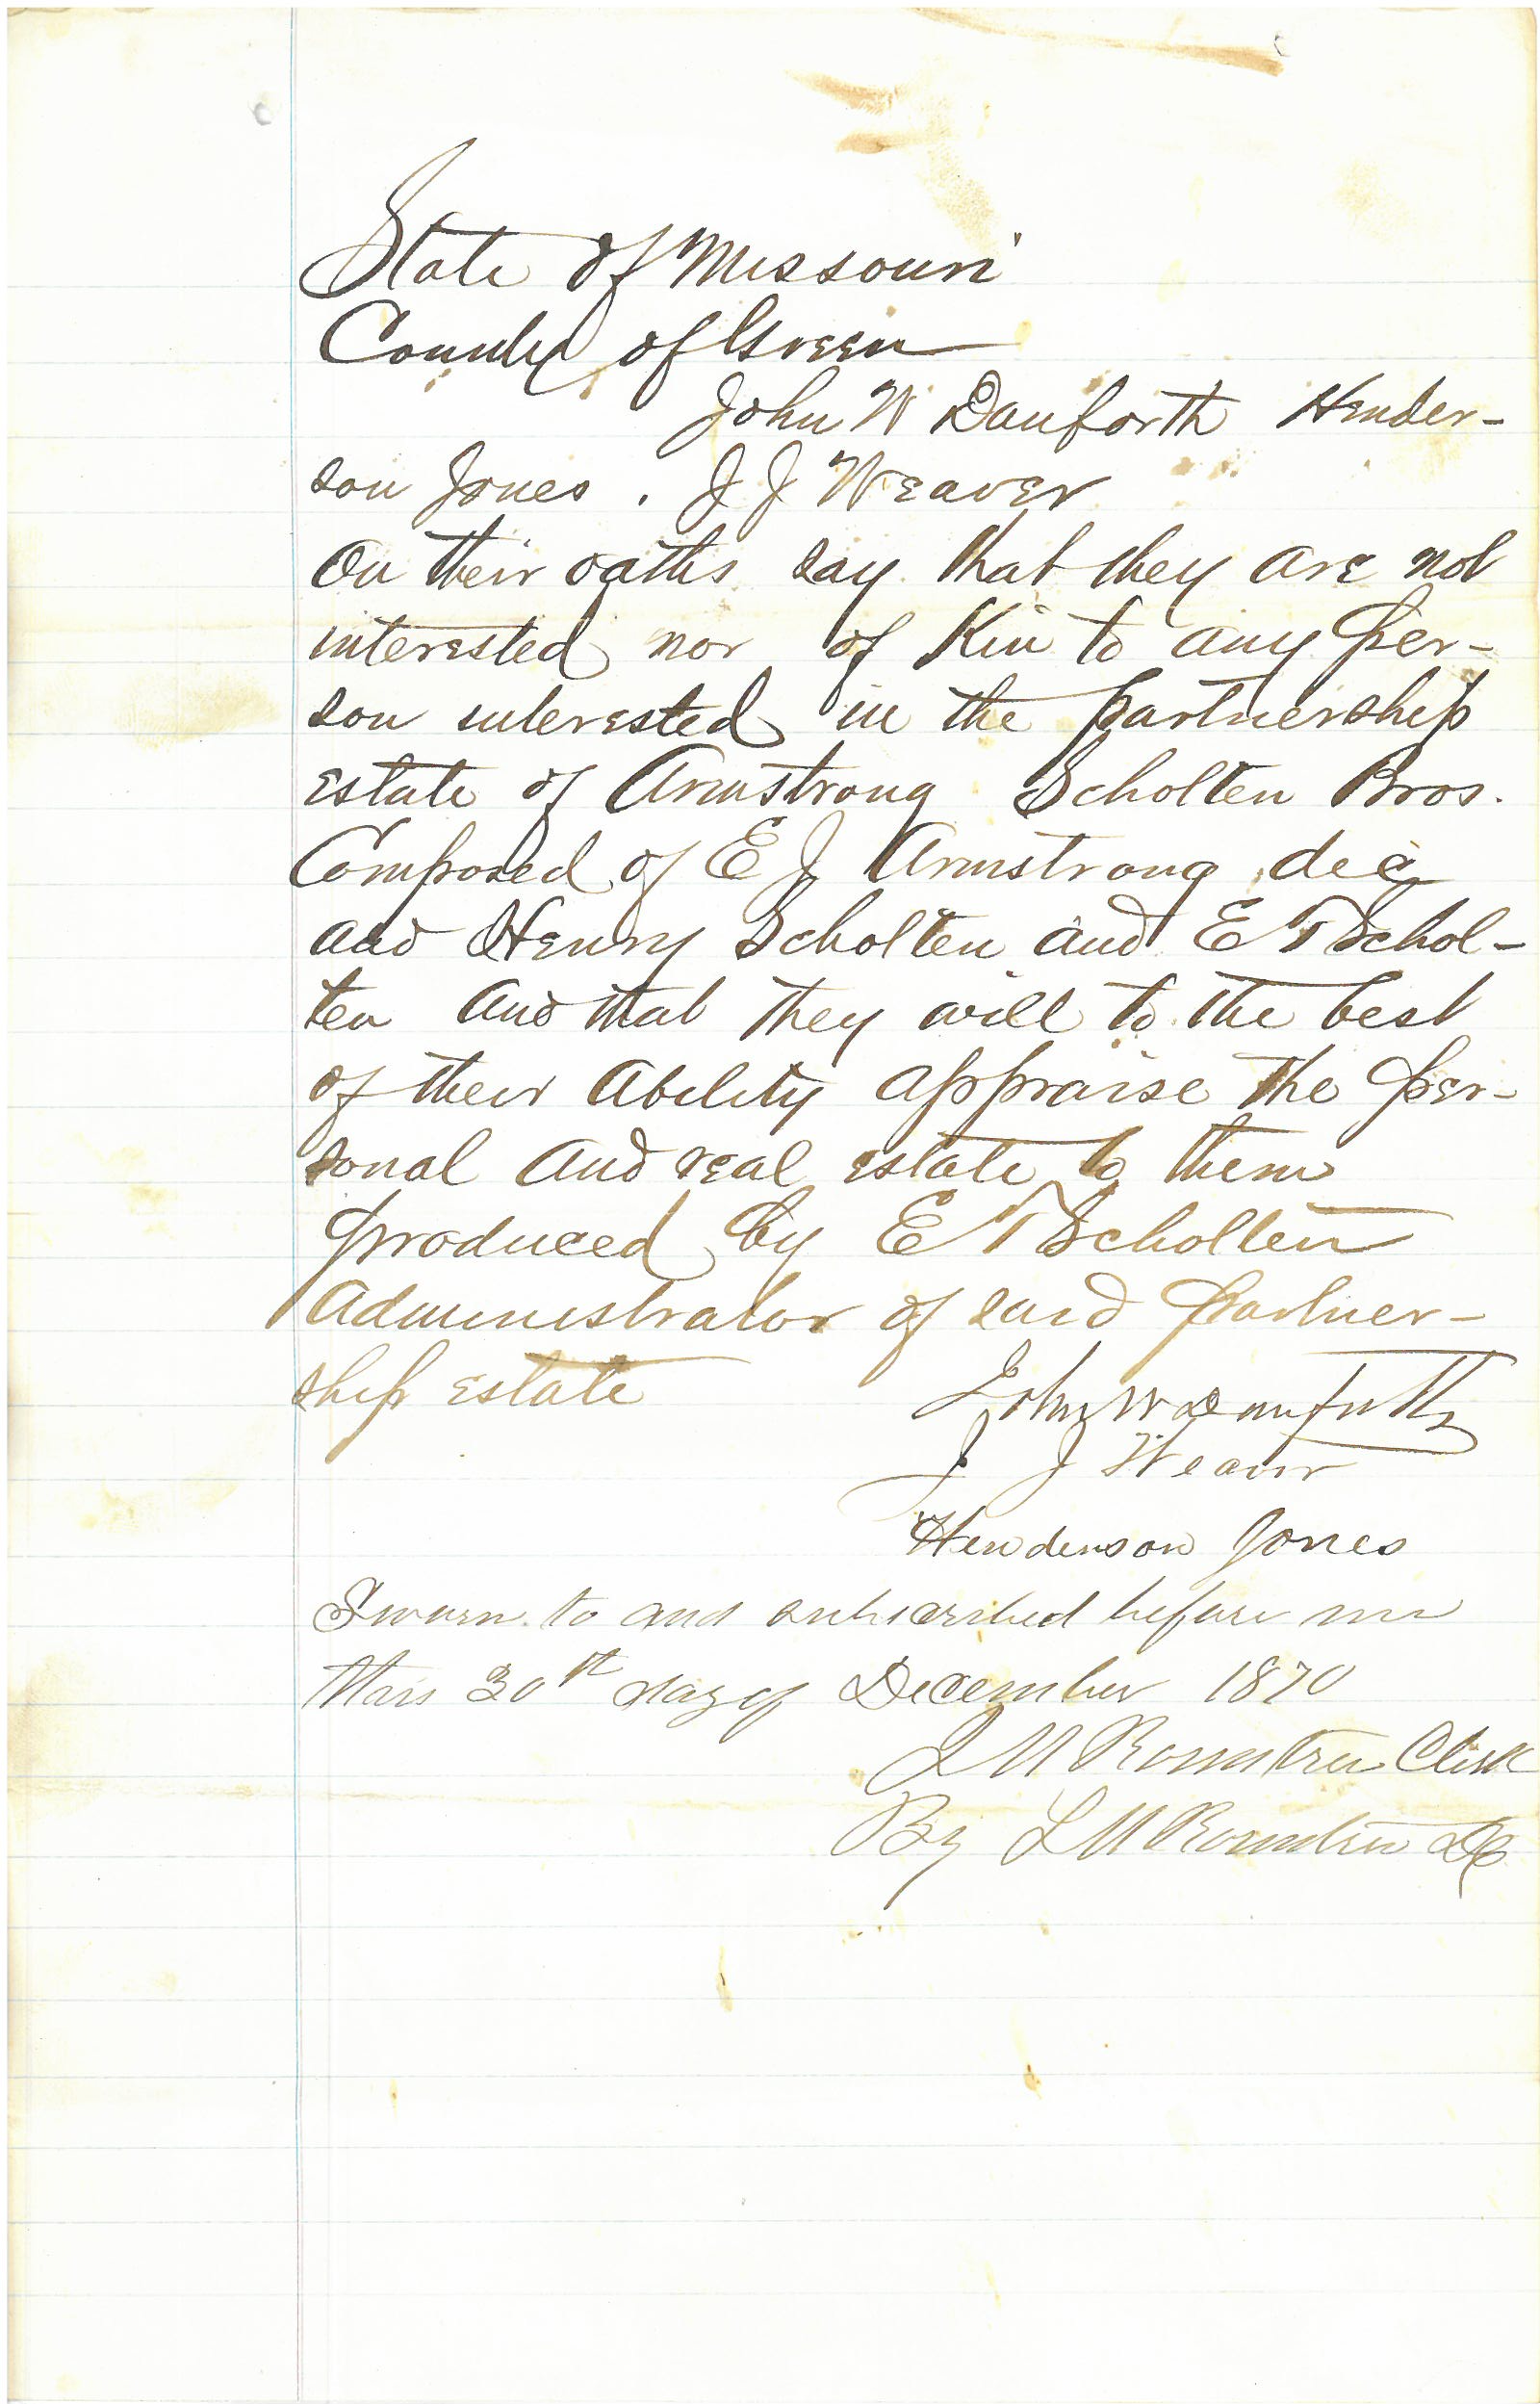 State of Missouri
County of Green
John W Danforth Hender-
son Jones . J J Weaver
On their oaths say that they are not
interested nor of Kin to any per-
son interested in the partnership
estate of Armstrong Scholten Bros.
Composed of E J Armstrong dec
and Henry Scholten and E T Schol-
ten And that they will to the best
of their Ability appraise the per-
sonal And real estate to them
produced by E T Scholten
Administrator of said partner-
ship estate
John W Danforth
J J Weaver
Henderson Jones
Sworn to and subscribed before me
this 30th day of December 1870
J M Rountree Clerk
By L M Rountree DC